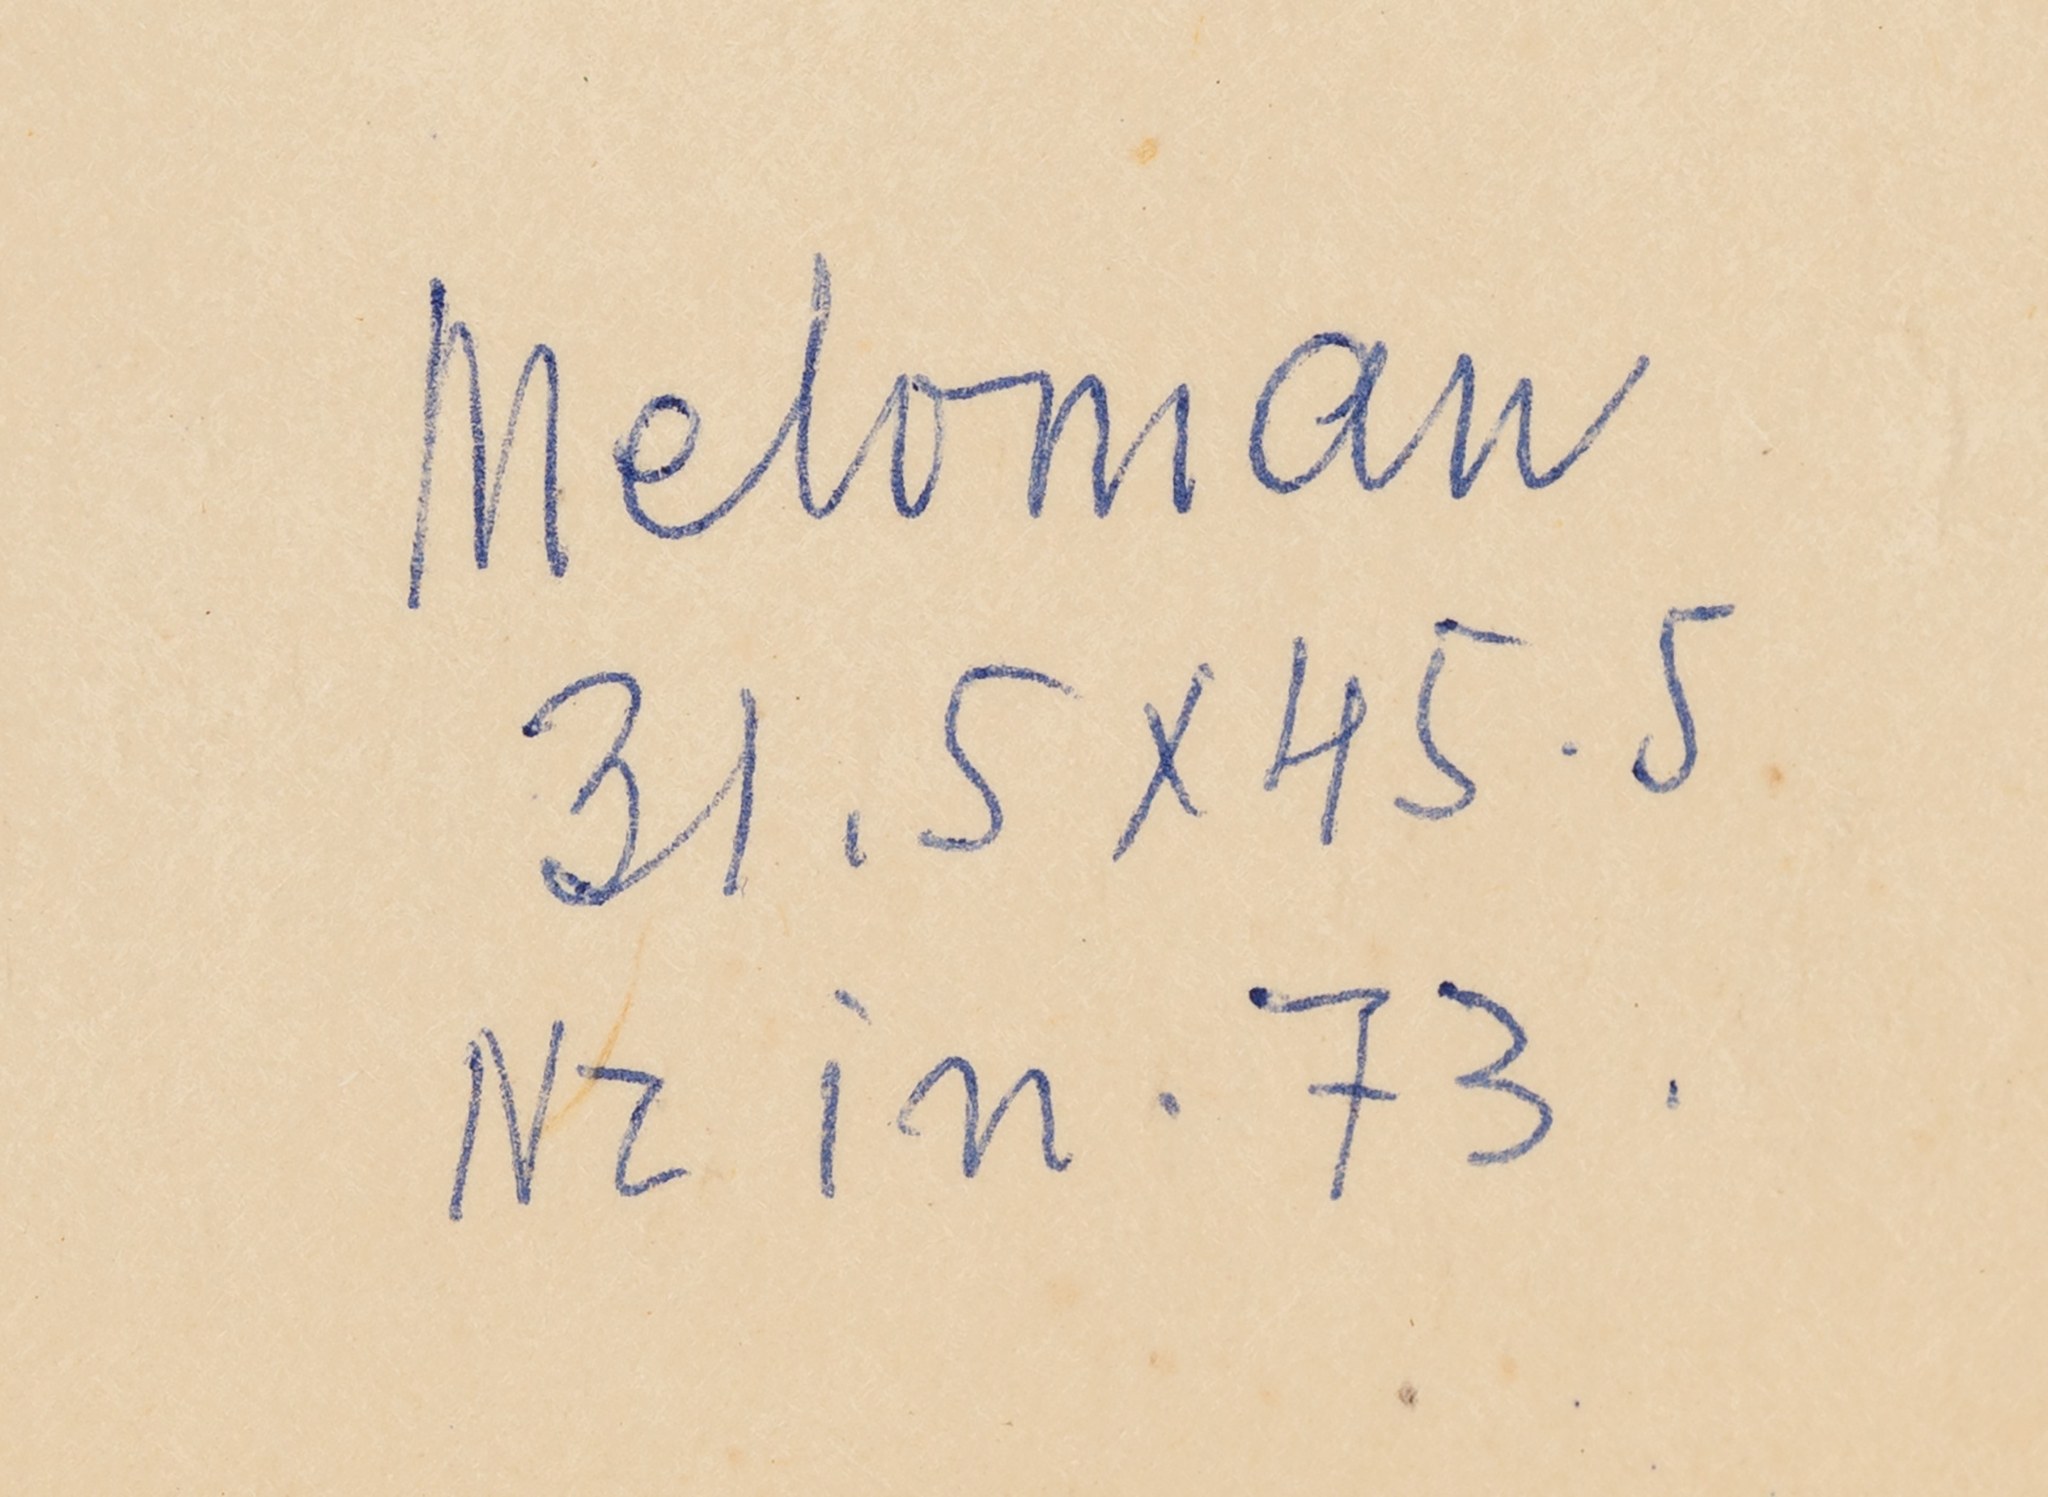 Meloman
31.5x45.5
Nr in. 73.